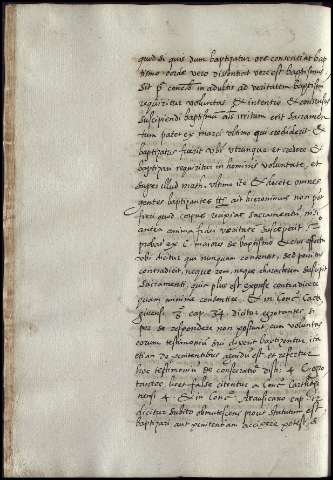 quod si quis dum baptizatur ore consentiat bap
tismo corde vero dissentiat vere est baptismus
sit 2º conclo in adultis ad veritatem baptismi
requiritur voluntas et intentio
suscipiendi baptismū alias irritum erit sacramen
tum patet ex marci ultimo qui crediderit et
baptizatus fuerit ubi utrunque et credere et
baptizari requiritur in hominis voluntate, et
super illud math. ultimo ite et docete omnes
gentes baptizantes ait hieronimus non po
test quod corpus recipiat sacramentū nisi
antea anima fidei veritate susceperit
ex c. maiores de baptismo et eius effectu
ubi dicitur qui nunquam consentit, sed penitus
contradicit, neque rem neque characterem suscipit
sacramenti, quia plus est expresse contradicere
quam minime consentire et in conc. carta
ginensi 3. cap. 34. dicitur egrotantes si
pro se respondere non possunt cum voluntatis
eorum testimoniū sui dixerint baptizentur, ita
etiam de penitentibus agendū est, et refertur
hoc testimonium de consecratio. dist. 4. c. egro
tantes, licet false citetur a conc. carthagi
nensi 4. et in conc. Arausicano cap. 12
dicitur subito obmutescens prout statutum est
baptizari aut penitentiam accipere potest, si